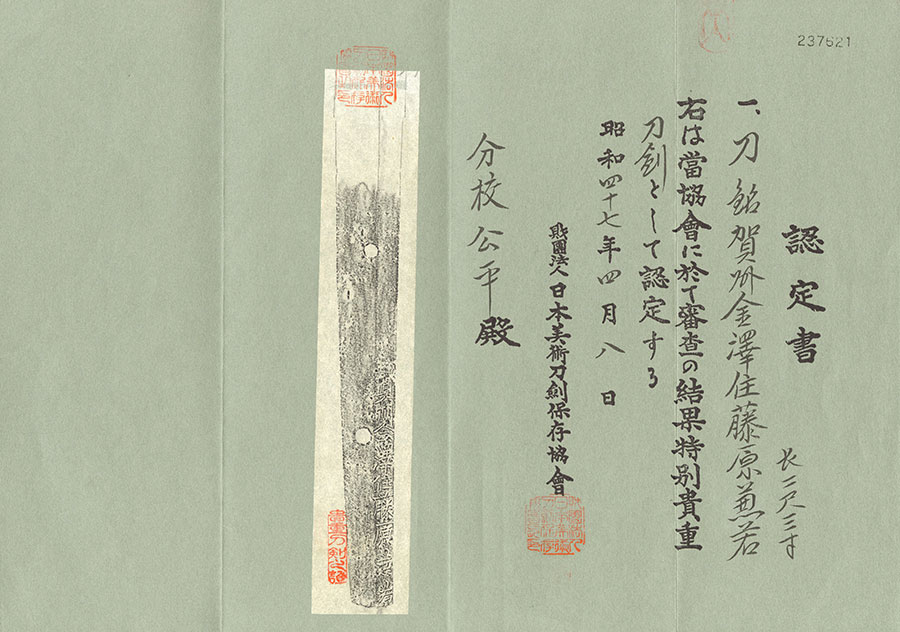 237621
認定書
一、刀 銘 賀州金澤住藤原兼若
長二尺三寸
右は當協會に於て審査の結果特別貴重
刀劍として認定する
昭和四十七年四月八日
財團法人日本美術刀劍保存協會
分校公平殿
貴重刀剣之証